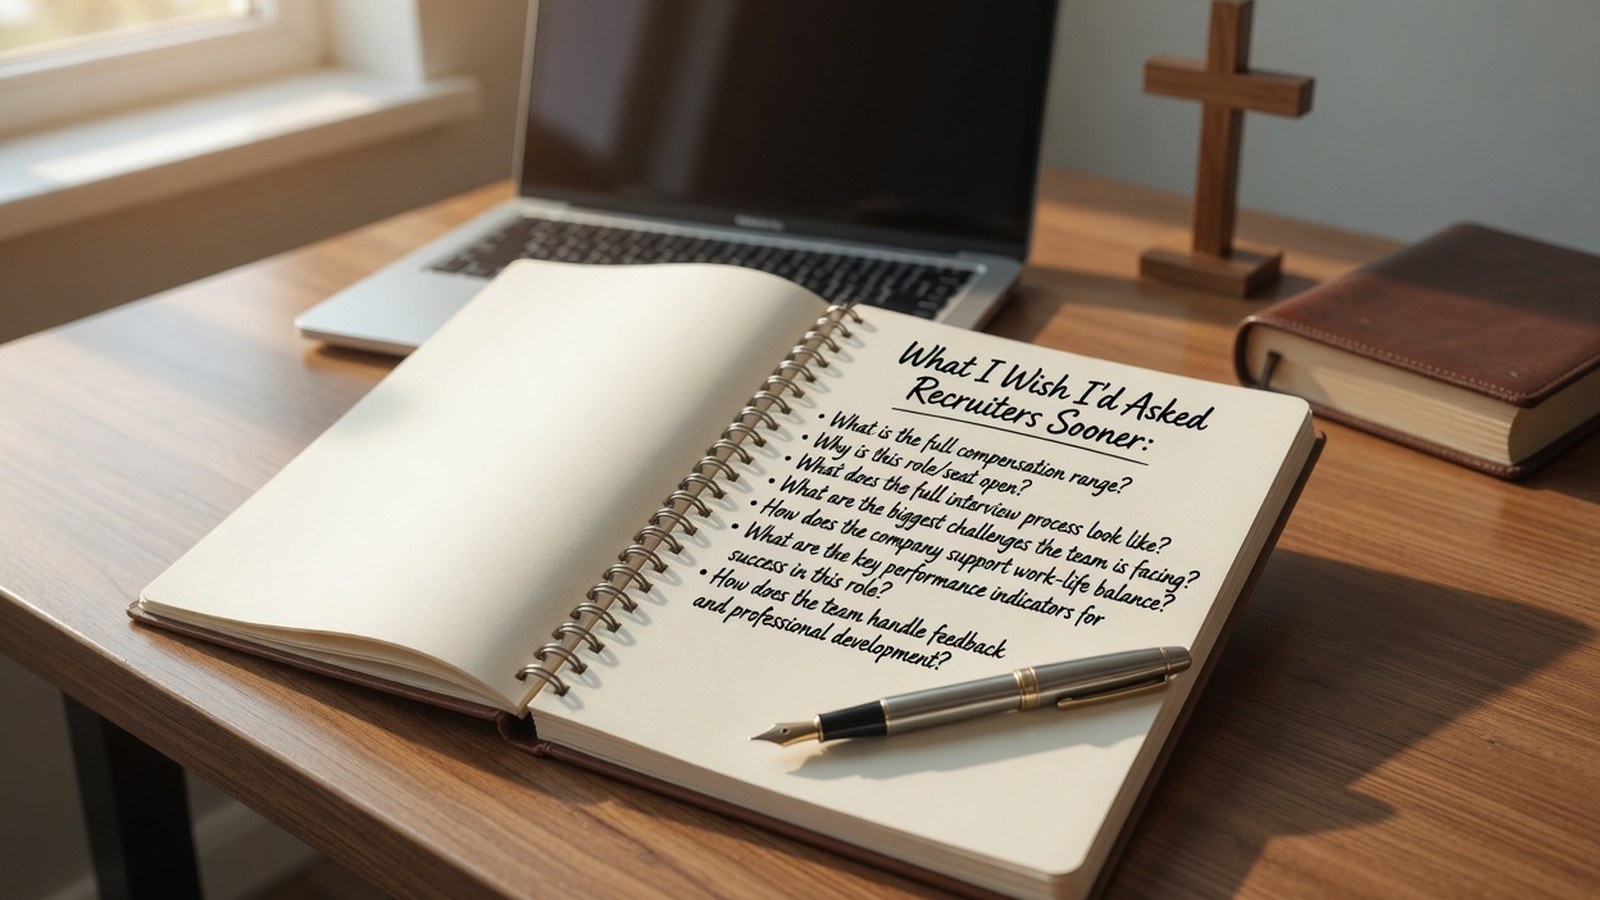 What I Wish I'd Asked
Recruiters Sooner:
• What is the full compensation range?
• Why is this role/seat open?
• What does the full interview process look like?
• What are the biggest challenges the team is facing?
• How does the company support work-life balance?
• What are the key performance indicators for
success in this role?
• How does the team handle feedback
and professional development?